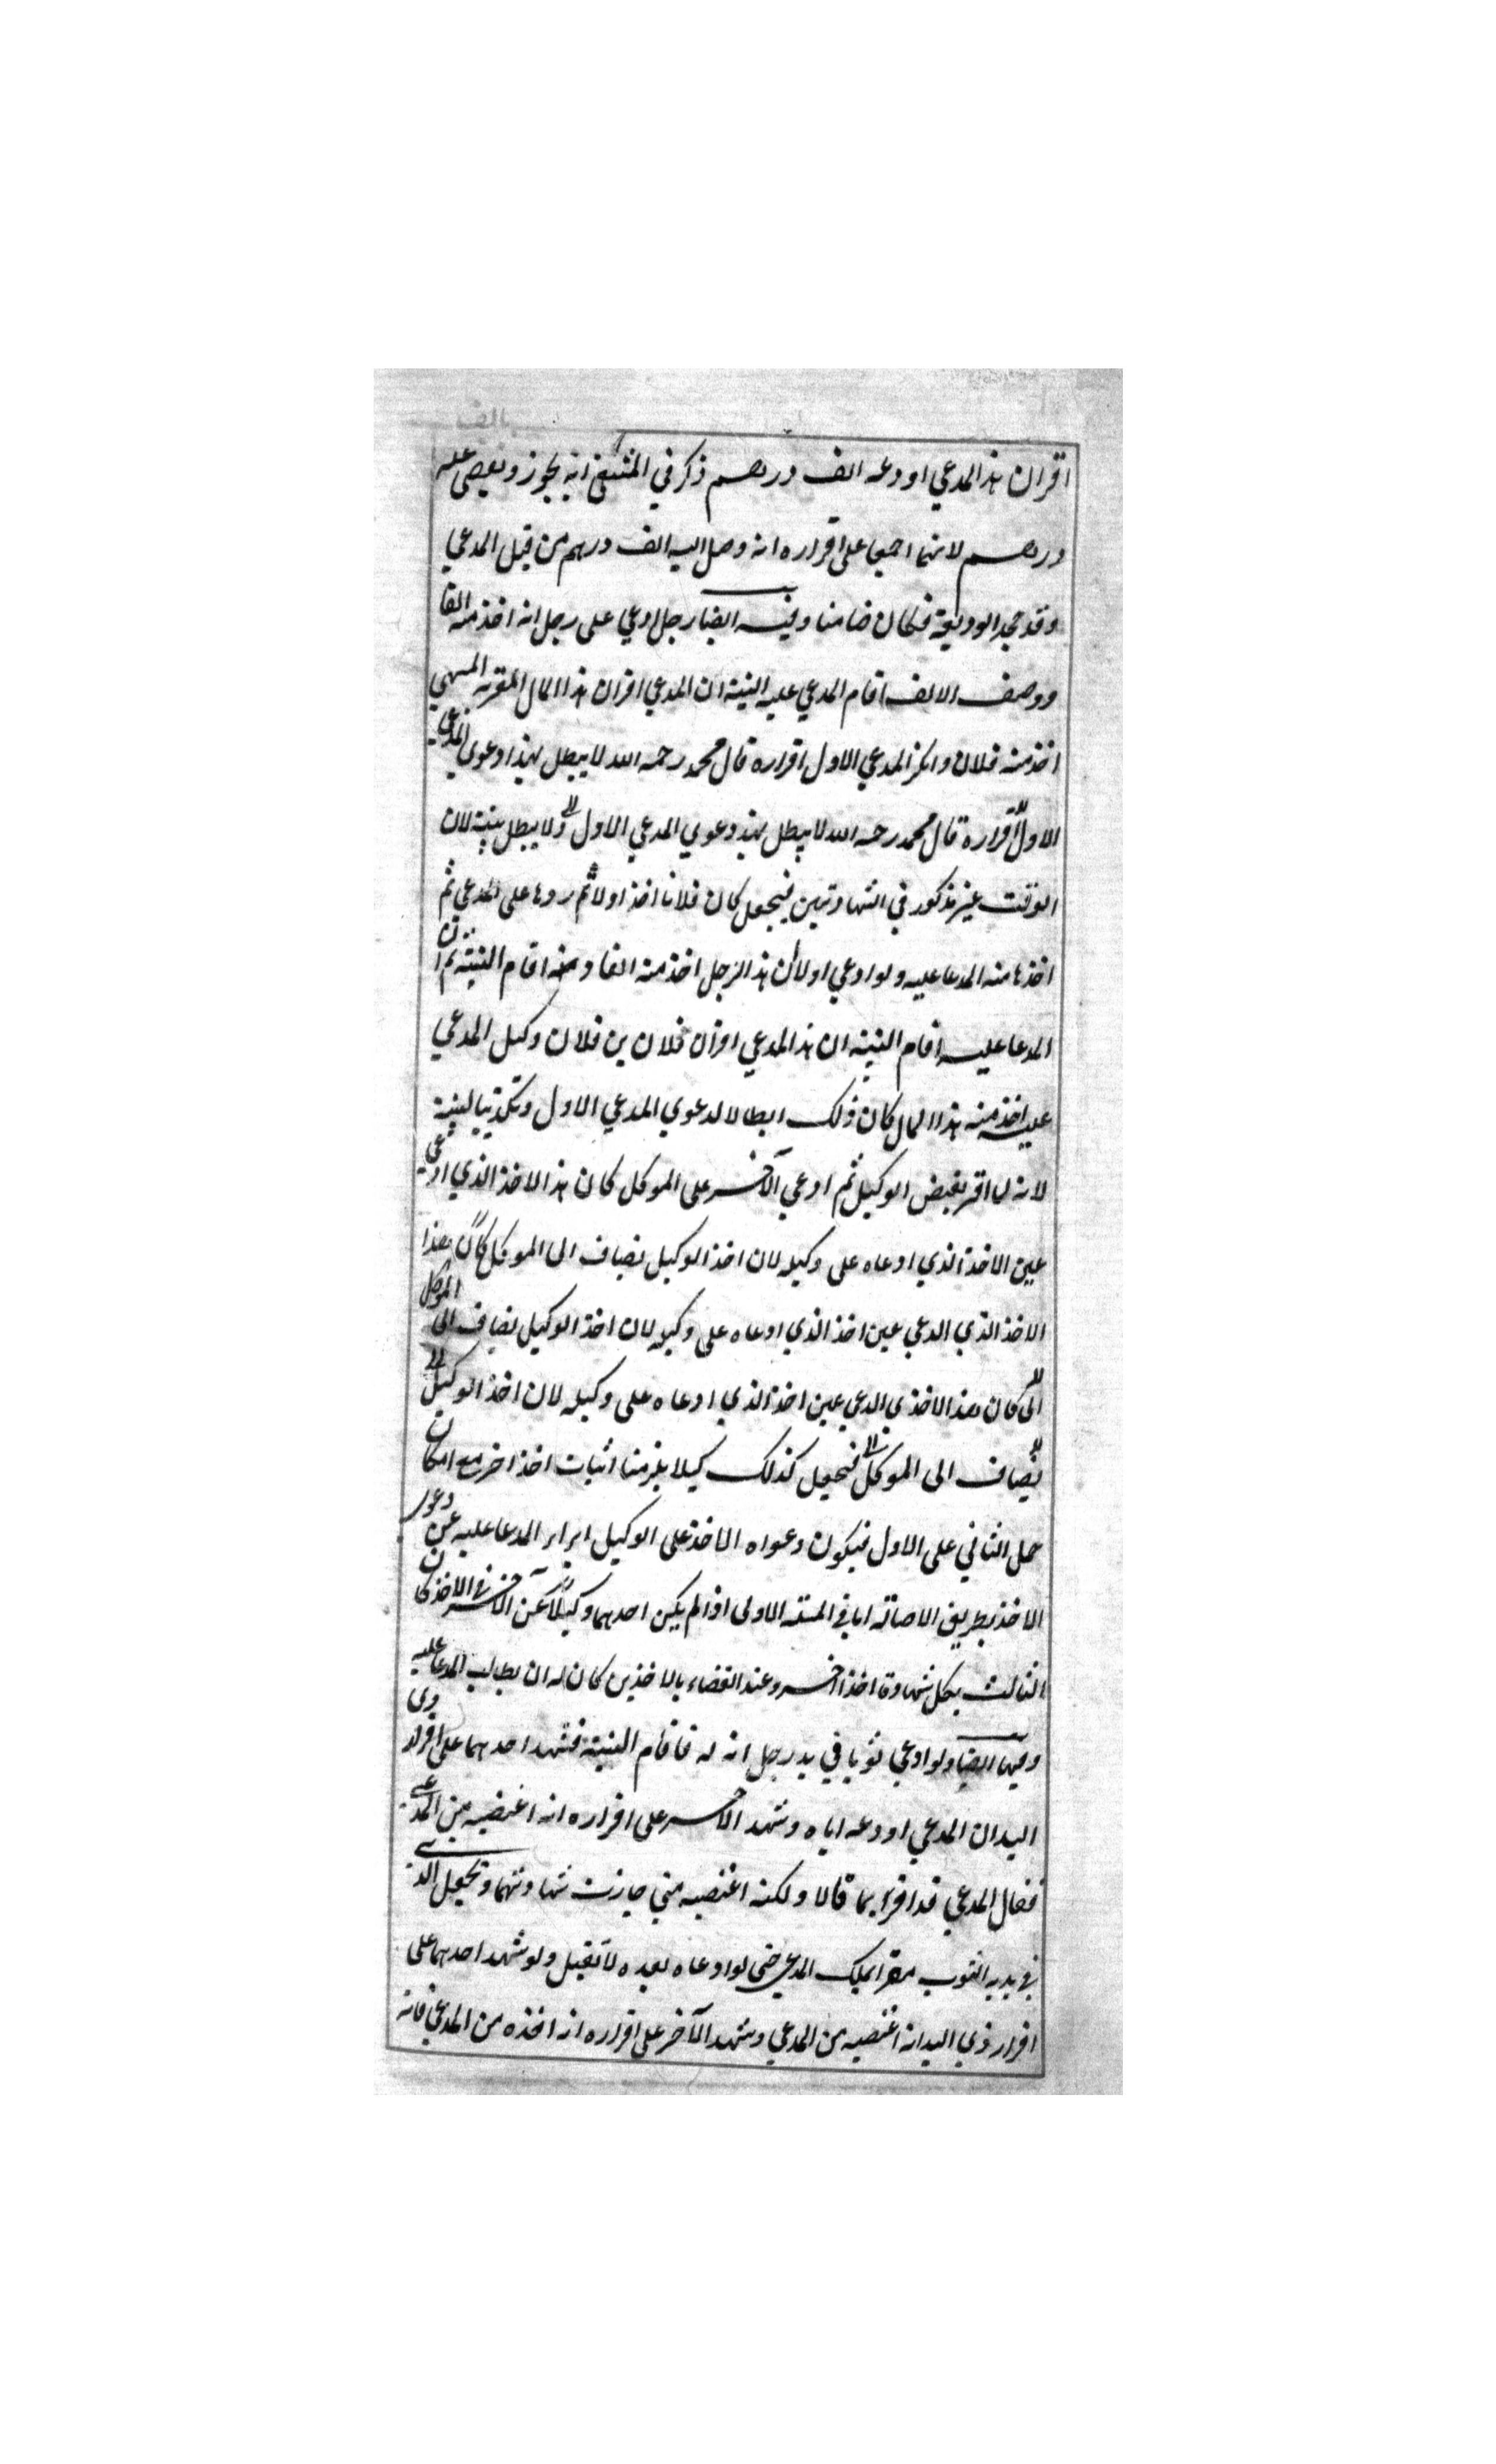 بالف
اقر ان هذا المدعي اودعه الف درهم ذكر في المنتقى انه يجوز ويقضى عليه
درهم لانهما اجمعا على اقراره انه وصل اليه الف درهم من قبل المدعي
وقد جحد الوديعة فكان ضامنا وفيه ايضا رجل ادعي على رجل انه اخذ منه الفا
ووصف الالف اقام المدعي عليه البينة ان المدعي اقر ان هذا المال المقر به المسمي
اخذ منه فلان وانكر المدعي الاول اقراره قال محمد رحمه الله لا يبطل بهذا دعوي المدعي
الاول اقراره قال محمد رحمه الله لا يبطل بهذ دعوي المدعي الاول ولا يبطل بينة لان
الوقت غير مذكور في الشهادتين فيجعل كان فلانا اخذ اولا ثم ردها على المدعي ثم
اخذها منه المدعا عليه ولو ادعي اولا ان هذا الرجل اخذ منه الفا وبينه اقام البينة ثم ان
المدعا عليه اقام البينة ان هذا المدعي اقر ان فلان بن فلان وكيل المدعي
عليه اخذ منه هذا المال كان ذلك ابطالا لدعوي المدعي الاول وتكذيبا لبينة
لانه لما اقر بقبض الوكيل ثم ادعي الآخر على الموكل كان هذا الاخذ الذي ادعي
عين الاخذ الذي ادعاه على وكيله لان اخذ الوكيل يضاف الى الموكل كان هذا
الاخذ الذي الدعي عين اخذ الذي ادعاه على وكيله لان اخذ الوكيل يضاف الى الموكل
الى كان هذا الاخذ ي الدعي عين اخذ الذي ادعاه على وكيله لان اخذ الوكيل
يضاف الى الموكل فيجعل كذلك كيلا يلزمنا اثبات اخذ اخر مع امكان
حمل الثاني على الاول فيكون دعواه الاخذ على الوكيل ابراء المدعا عليه عن دعوى
الاخذ بطريق الاصالة اما في المسئلة الاولى اذا لم يكن احدهما وكيلا عن الآخر في الاخذ كان
الثالث بكل شهادة اخذ اخر وعند القضاء بالاخذين كان له ان يطالب المدعا عليه
وفيها ايضا ولو ادعي ثوبا في يد رجل انه له فاقام البينة فشهد احدهما على اقرار ذى
اليد ان المدعي اودعه اياه وشهد الآخر على اقراره انه اغتصبه من المدعي
فقال المدعي قد اقر بما قالا ولكنه اغتصبه مني جازت شهادتهما وتجعل الذي
في يديه الثوب مقرا بملك المدعي حتى لو ادعاه بعده لا تقبل ولو شهد احدهما على
اقرار ذي اليد انه اغتصبه من المدعي وشهد الآخر على اقراره انه اخذه من المدعي فانه